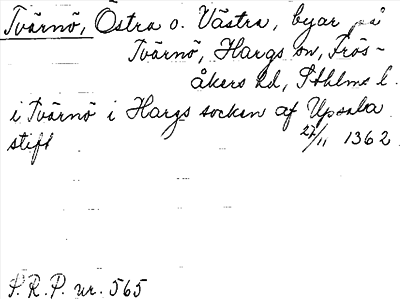 Tvärnö, Östra o. Västra, byar på
Tvärnö, Hargs sn, Frös-
åkers hd, Sthlms l.
i Tvärnö i Hargs socken af Upsala
stift 27/11 1362
S.R.P. nr. 565